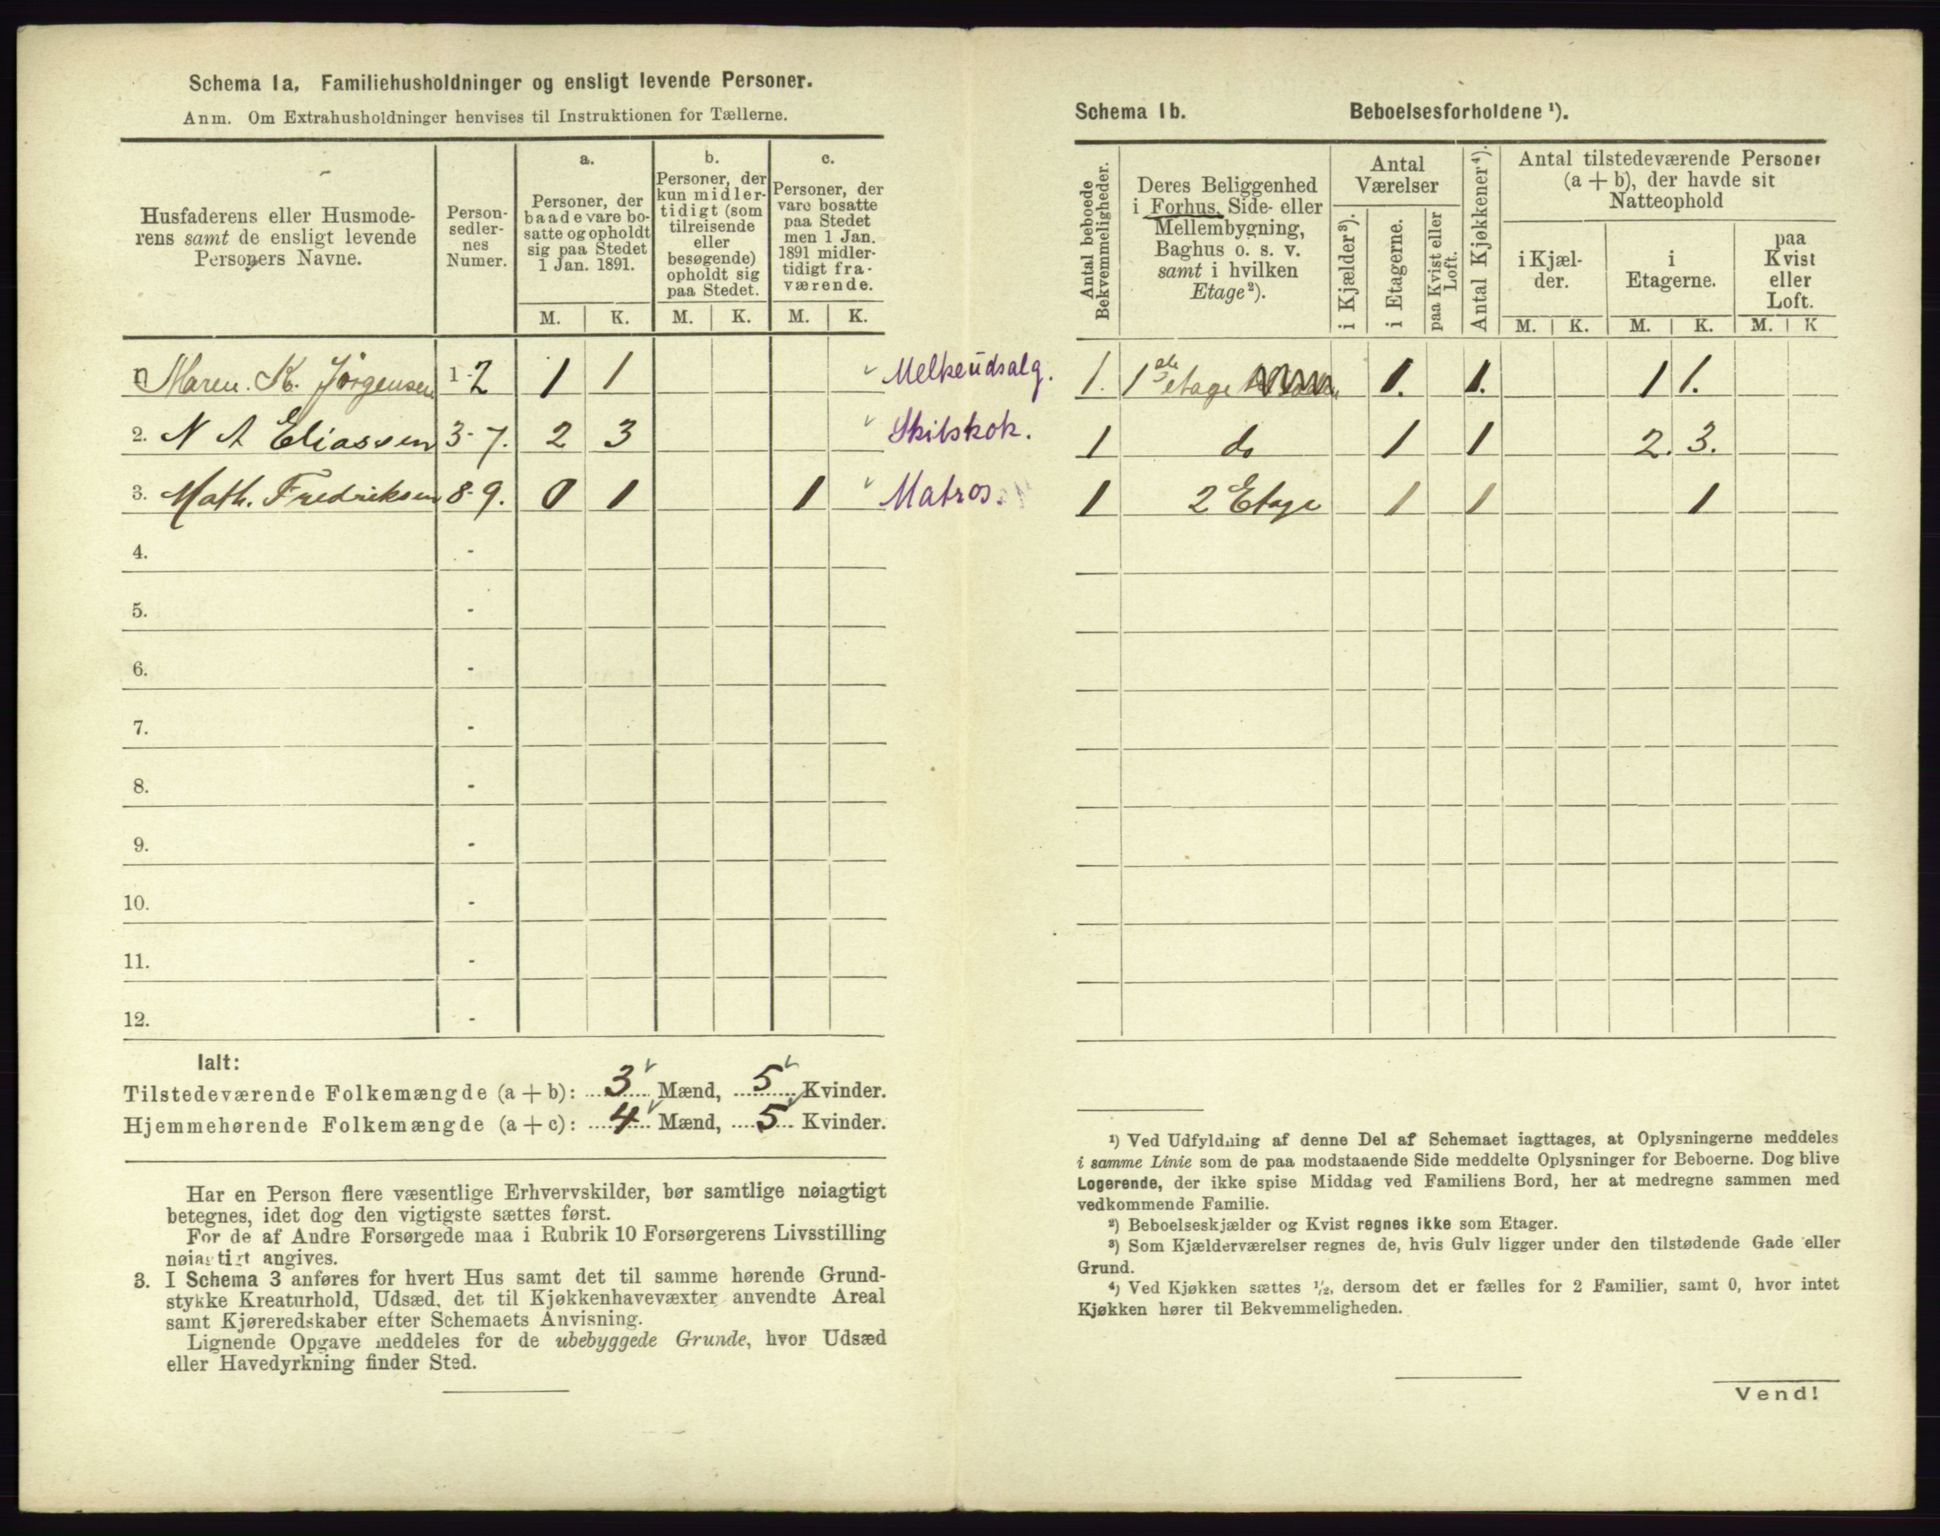 Schema 1a. Familiehusholdninger og ensligt levende Personer.
Anm. Om Extrahusholdninger henvises til Instruktionen for Tællerne.
Husfaderens eller Husmode-
rens samt de ensligt levende
Personers Navne.
Person-
sedler-
nes
Numer.
a.
Personer, der
baade vare bo-
satte og opholdt
sig paa Stedet
1 Jan. 1891.
b.
Personer, der
kun midler-
tidigt (som
tilreisende
eller
besøgende)
opholdt sig
paa Stedet.
c.
Personer, der
vare bosatte
paa Stedet
men 1 Jan.
1891 midler-
tidigt fra-
værende.
M. K. M. K. M. K.
1. Maren K. Jörgensen 1-2 1 1 Melkeudsalg.
2. N A Eliassen 3-7. 2 3 Skibskok.
3. Math. Fredriksen 8-9. 0 1 1 Matros.
4. -
5. -
6. -
7. -
8. -
9. -
10. -
11. -
12. -
Ialt:
Tilstedeværende Folkemængde (a + b): 3 Mænd, 5 Kvinder.
Hjemmehørende Folkemængde (a + c): 4 Mænd, 5 Kvinder.
Har en Person flere væsentlige Erhvervskilder, bør samtlige nøiagtigt
betegnes, idet dog den vigtigste sættes først.
For de af Andre Forsørgede maa i Rubrik 10 Forsørgerens Livsstilling
nøiagtigt angives.
3. I Schema 3 anføres for hvert Hus samt det til samme hørende Grund-
stykke Kreaturhold, Udsæd, det til Kjøkkenhavevæxter anvendte Areal
samt Kjøreredskaber efter Schemaets Anvisning.
Lignende Opgave meddeles for de ubebyggede Grunde, hvor Udsæd
eller Havedyrkning finder Sted.
Schema 1b. Beboelsesforholdene ¹).
Antal beboede
Bekvemmeligheder.
Deres Beliggenhed
i Forhus, Side- eller
Mellembygning,
Baghus o. s. v.
samt i hvilken
Etage²).
Antal
Værelser
i Kjælder³).
i Etagerne.
paa Kvist eller
Loft.
Antal Kjøkkener⁴).
Antal tilstedeværende Personer
(a + b), der havde sit
Natteophold
i Kjæl-
der.
i
Etagerne.
paa
Kvist
eller
Loft.
M. K. M. K. M. K
1. 1 etage 1. 1. 1 1.
1 do 1 1 2. 3.
1 2 Etage 1 1 1
¹) Ved Udfyldning af denne Del af Schemaet iagttages, at Oplysningerne meddeles
i samme Linie som de paa modstaaende Side meddelte Oplysninger for Beboerne. Dog blive
Logerende, der ikke spise Middag ved Familiens Bord, her at medregne sammen med
vedkommende Familie.
²) Beboelseskjælder og Kvist regnes ikke som Etager.
³) Som Kjælderværelser regnes de, hvis Gulv ligger under den tilstødende Gade eller
Grund.
⁴) Ved Kjøkken sættes ½, dersom det er fælles for 2 Familier, samt 0, hvor intet
Kjøkken hører til Bekvemmeligheden.
Vend!